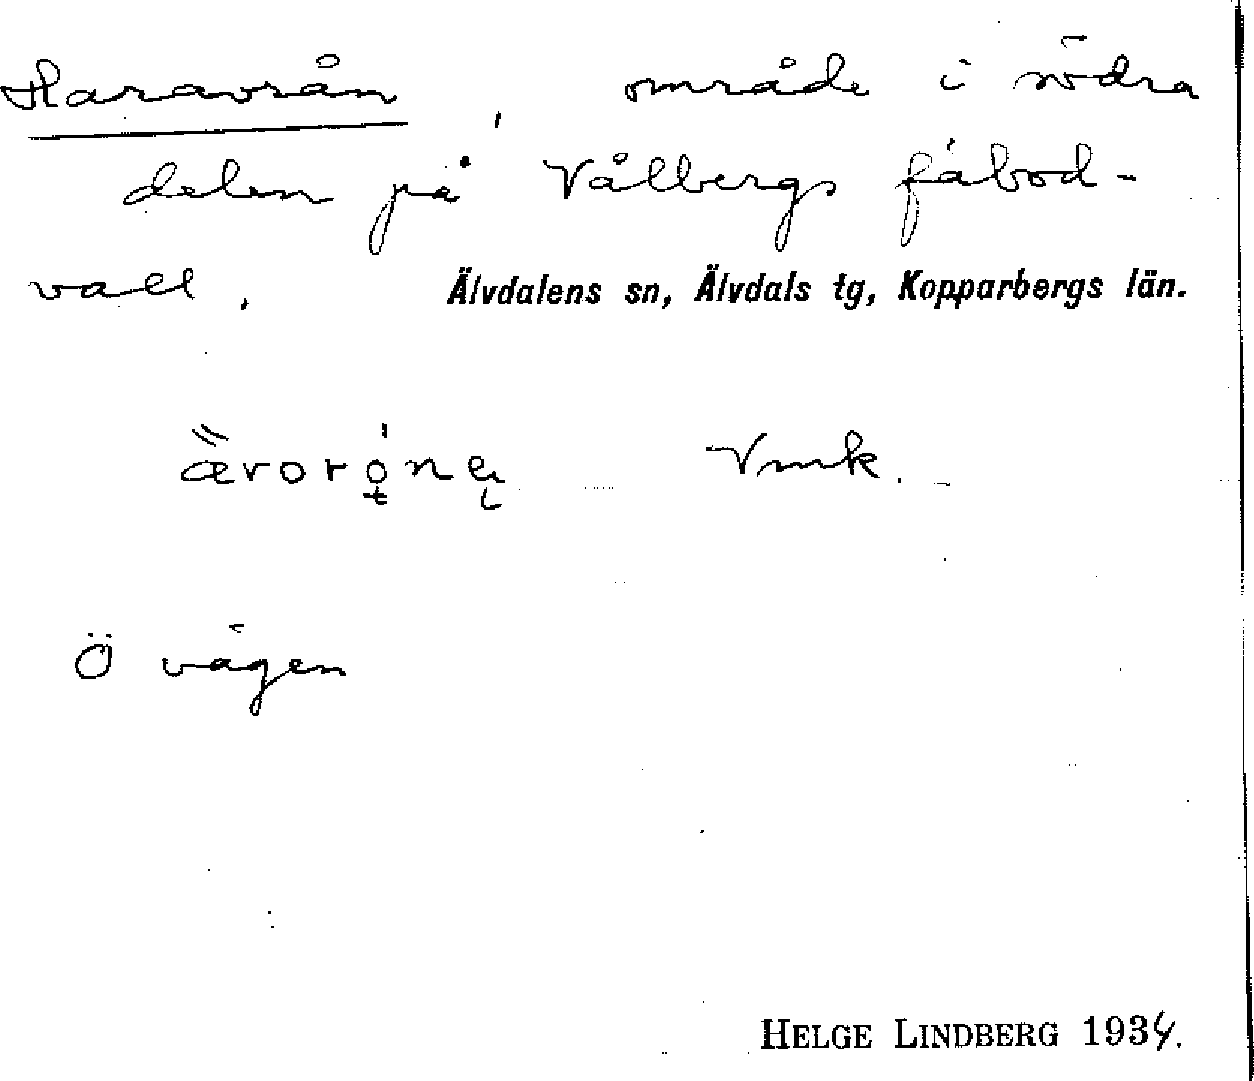 Haravrån, område i södra
delen på Vålbergs fäbod-
vall. Älvdalens sn, Älvdals tg, Kopparbergs län.
Vmk.
Ö vägen
HELGE LINDBERG 1934.